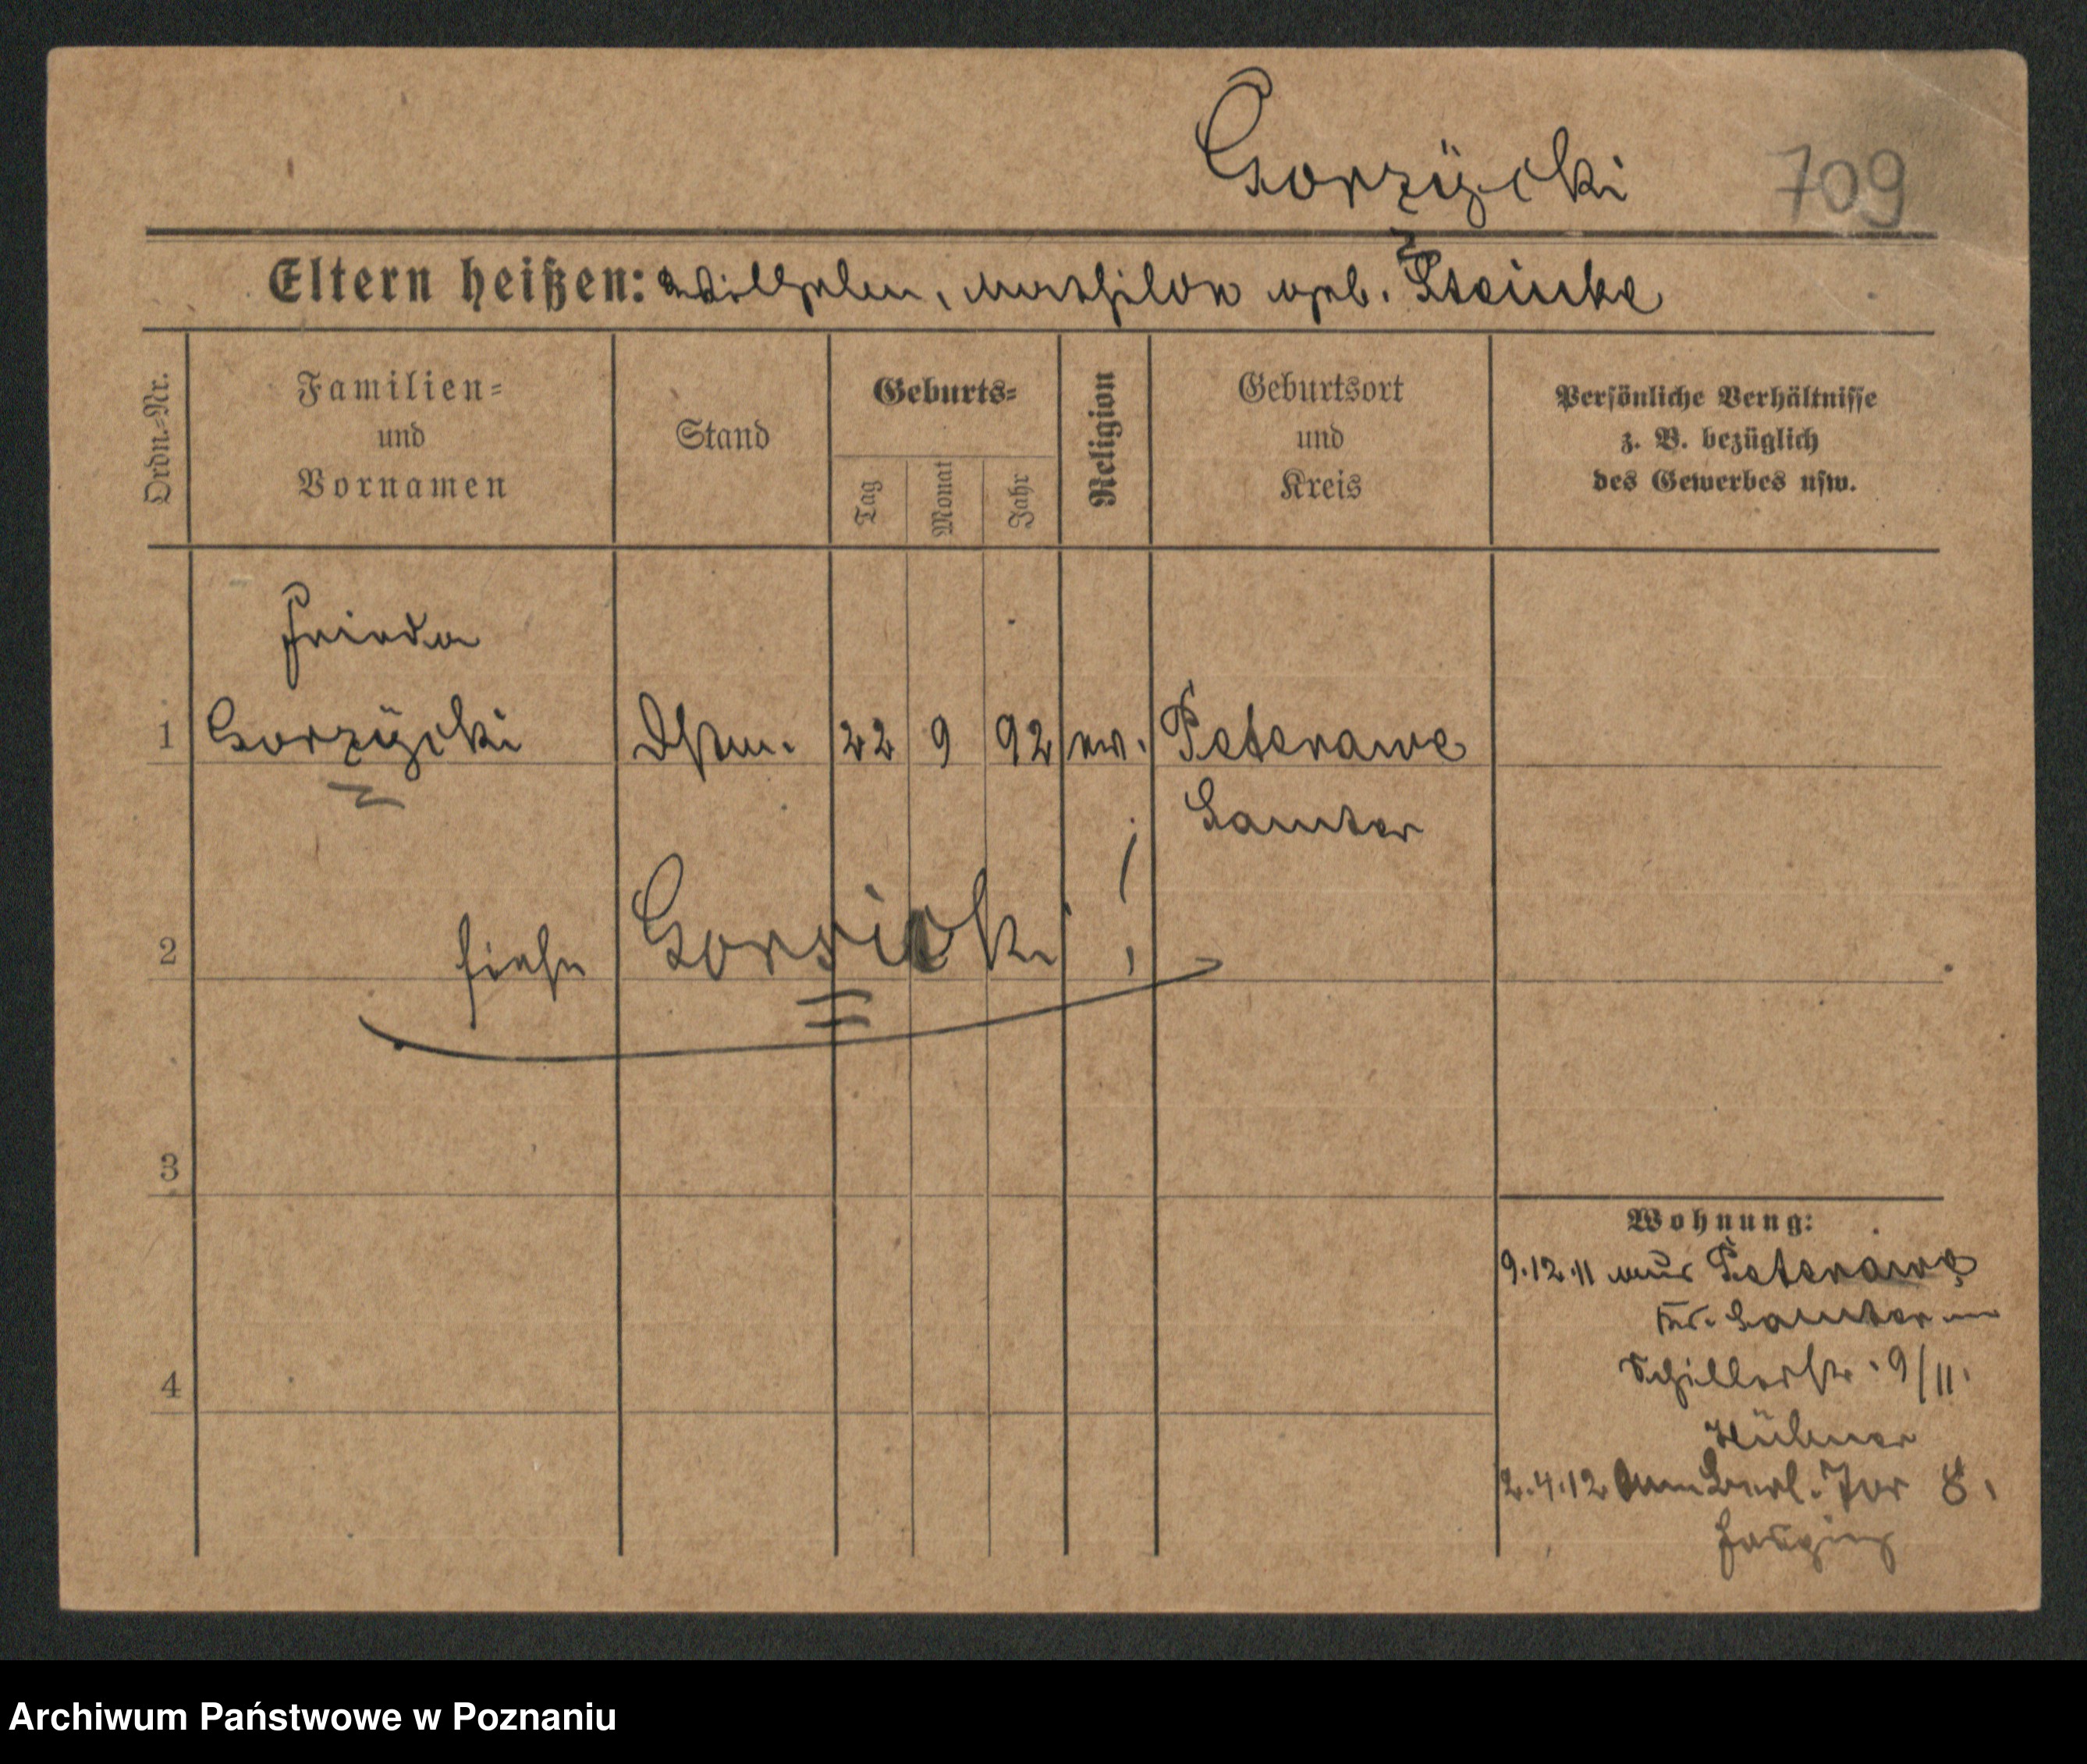 Gorzÿcki 709
Eltern heißen: Wilhelm, Mathilde geb. Steinke
Ordn.-Nr.
Familien-
und
Vornamen
Stand
Geburts-
Tag
Monat
Jahr
Religion
Geburtsort
und
Kreis
Persönliche Verhältnisse
z. B. bezüglich
des Gewerbes usw.
Frieda
1 Gorzÿcki 22 9 92 ev. Peterawe
Samter
2 siehe Gorsicki !
3
Wohnung:
9.12.11 aus Peterawe
Kr. Samter
Schillerstr. 9/II.
4
Hübner
2.4.12 Am Berl. Tor 8.
Archiwum Państwowe w Poznaniu